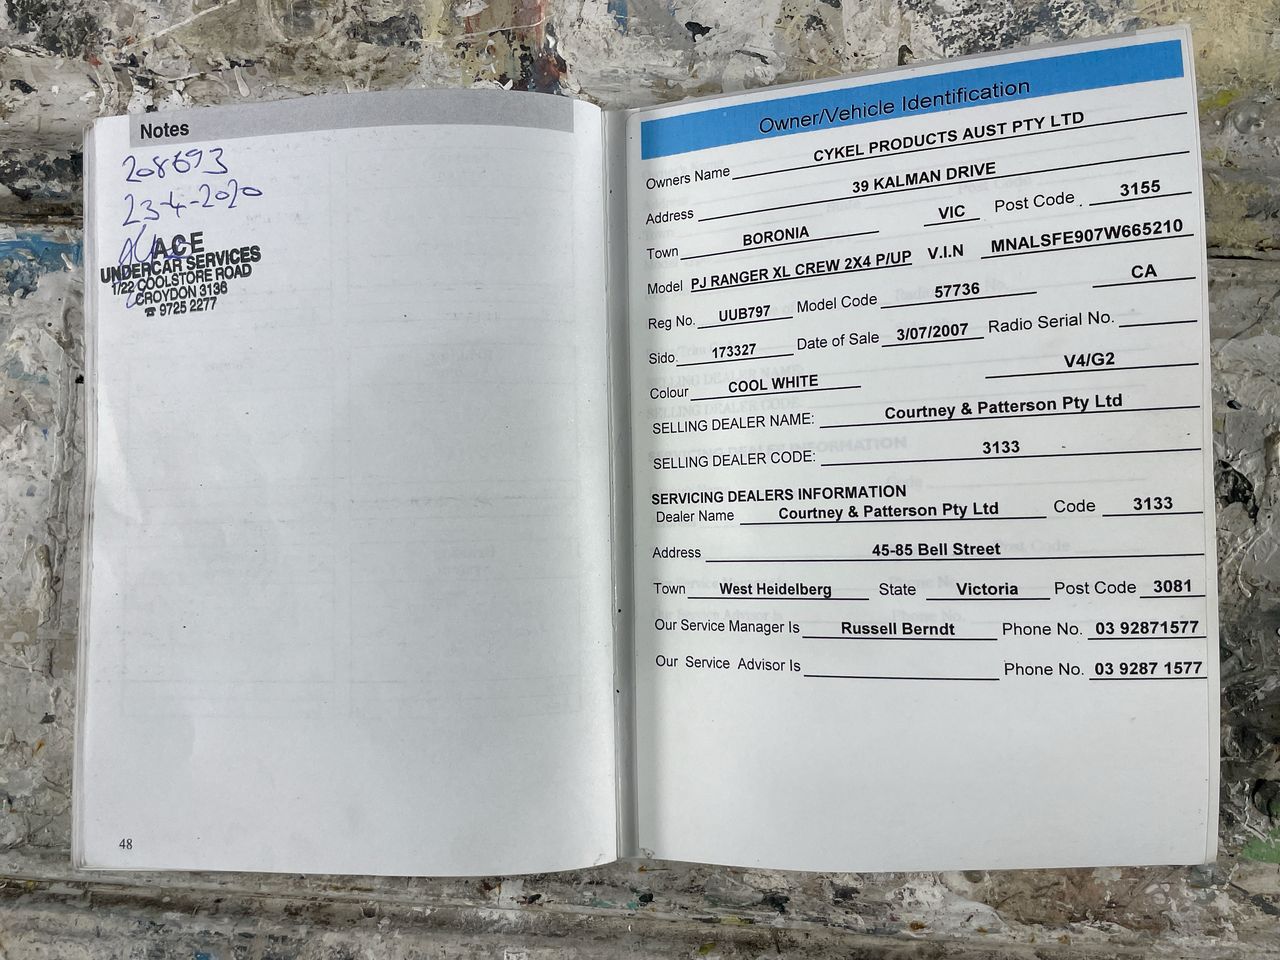 Notes
208693
23-4-2020
ACE
UNDERCAR SERVICES
1/22 COOLSTORE ROAD
CROYDON 3136
☎ 9725 2277
48
Owner/Vehicle Identification
Owners Name CYKEL PRODUCTS AUST PTY LTD
Address 39 KALMAN DRIVE
Town BORONIA VIC Post Code 3155
Model PJ RANGER XL CREW 2X4 P/UP V.I.N MNALSFE907W665210
Reg No. UUB797 Model Code 57736 CA
Sido. 173327 Date of Sale 3/07/2007 Radio Serial No.
Colour COOL WHITE V4/G2
SELLING DEALER NAME: Courtney & Patterson Pty Ltd
SELLING DEALER CODE: 3133
SERVICING DEALERS INFORMATION
Dealer Name Courtney & Patterson Pty Ltd Code 3133
Address 45-85 Bell Street
Town West Heidelberg State Victoria Post Code 3081
Our Service Manager Is Russell Berndt Phone No. 03 92871577
Our Service Advisor Is Phone No. 03 9287 1577